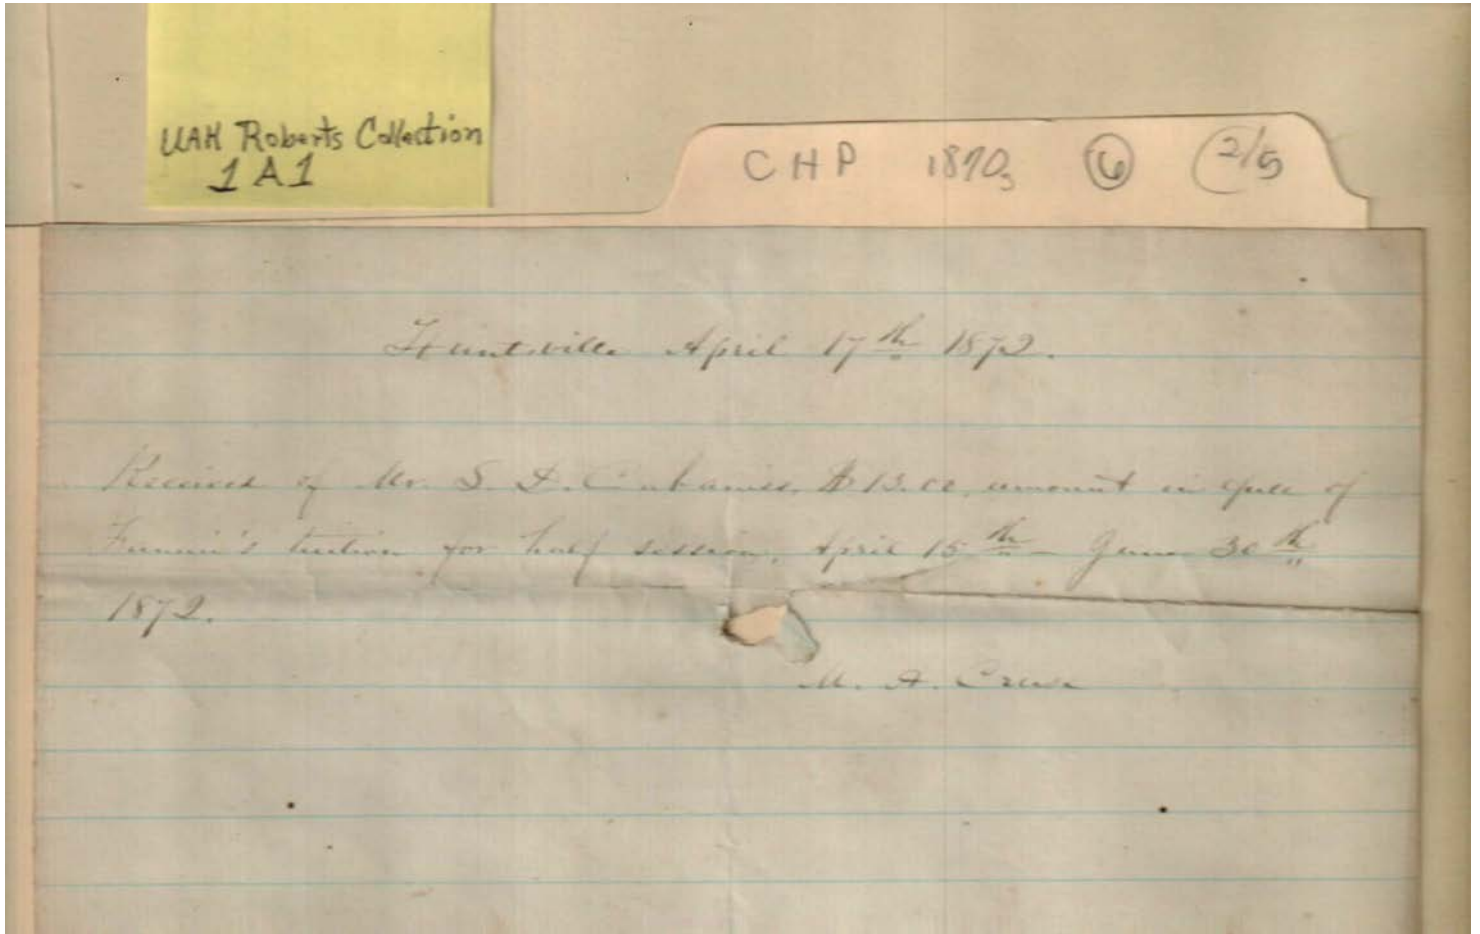 UAH Roberts Collection
1A1
CHP 1870s 6 2/5
Huntsville April 17th 1872.
Received of Mr. S. D. Cabaniss, $13.00, amount in full of
Fannie's tuition for half session, April 15th – June 30th
1872.
M. A. Cruse